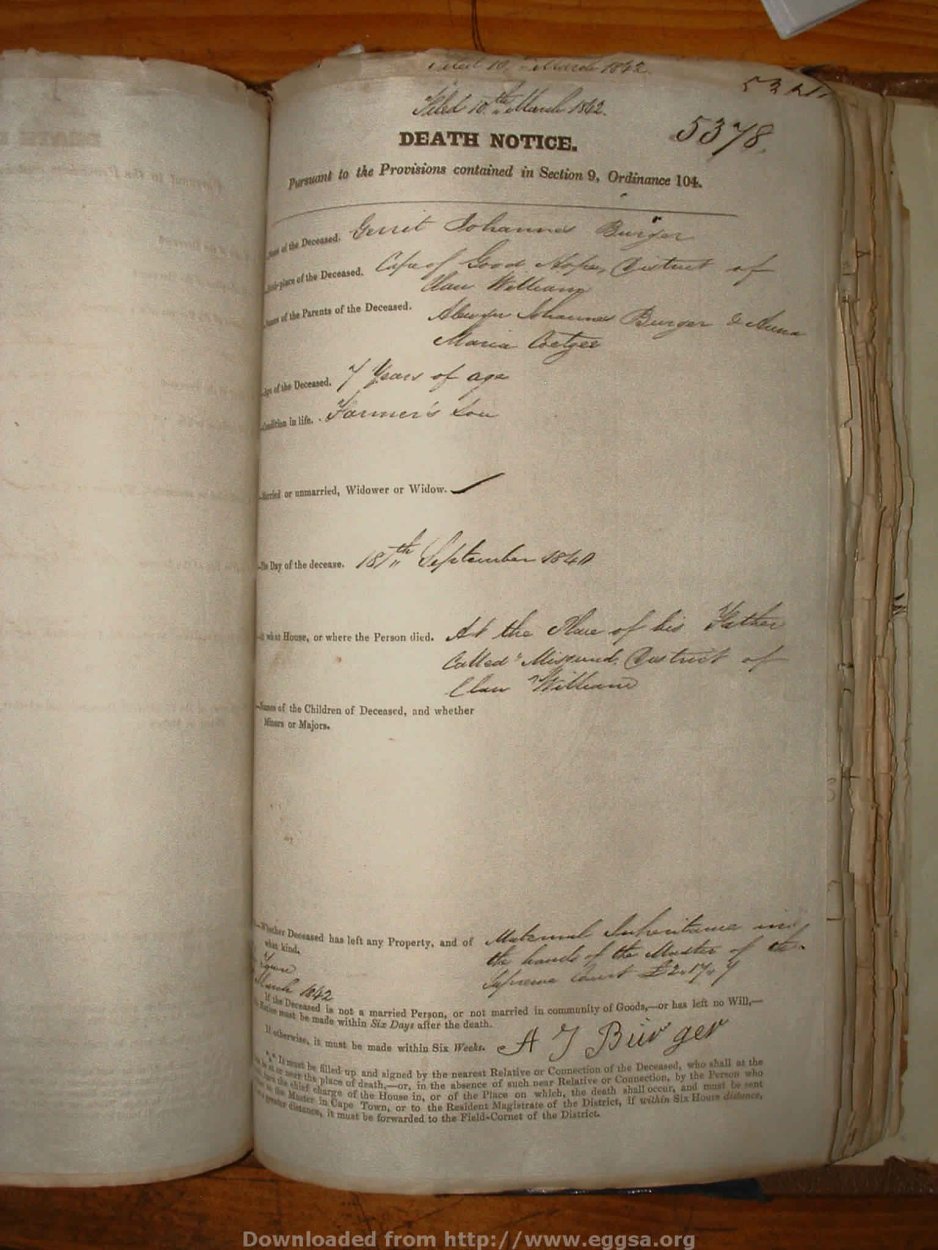 Filed 10th March 1842.
5378.
DEATH NOTICE.
Pursuant to the Provisions contained in Section 9, Ordinance 104.
Name of the Deceased. Gerrit Johannes Burger
Birth-place of the Deceased. Cape of Good Hope, District of
Clan William
Names of the Parents of the Deceased. Johannes Burger & Anna
Maria Coetzee
Age of the Deceased. 7 Years of age
Condition in life. Farmer's Son
Married or unmarried, Widower or Widow.
The Day of the decease. 18th September 1840
At what House, or where the Person died. At the Place of his Father
Called Misgund, District of
Clan William
Names of the Children of Deceased, and whether
Minors or Majors.
Whether Deceased has left any Property, and of Maternal Inheritance in
what kind. the hands of the Master of the
Supreme Court £2.17.
Town
March 1842
If the Deceased is not a married Person, or not married in community of Goods,—or has left no Will,—
Notice must be made within Six Days after the death.
If otherwise, it must be made within Six Weeks. A J Burger
*** It must be filled up and signed by the nearest Relative or Connection of the Deceased, who shall at the
be at or near the place of death,—or, in the absence of such near Relative or Connection, by the Person who
the chief charge of the House in, or of the Place on which, the death shall occur, and must be sent
to the Master in Cape Town, or to the Resident Magistrate of the District, if within Six Hours distance,
greater distance, it must be forwarded to the Field-Cornet of the District.
Downloaded from http://www.eggsa.org